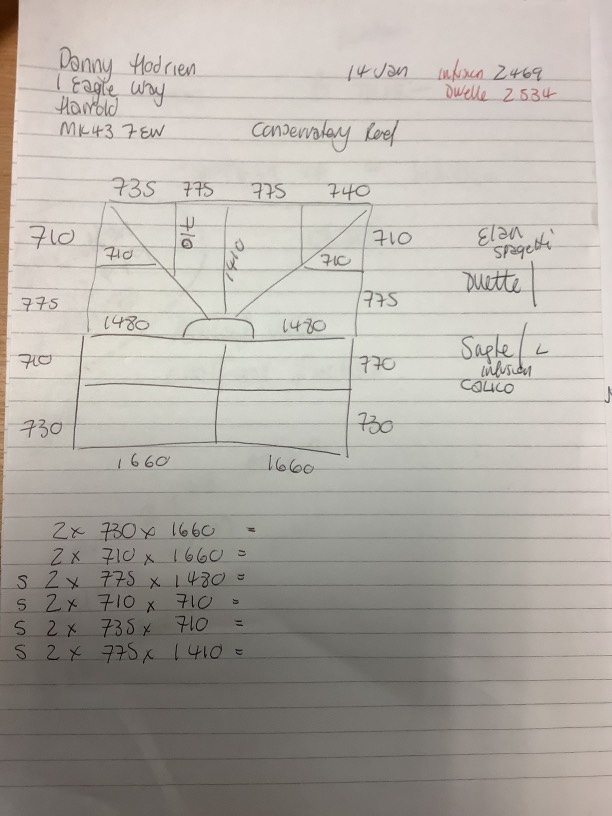 Danny Hodrien
1 Eagle Way
Harrold
MK43 7EW
14 Jan
infusion 2469
Duette 2534
Conservatory Roof
735 775 775 740
710 710 1410 710
710 710
775 775
1480 1480
710 770
730 730
1660 1660
Elan
spagetti
Duette
infusion
calico
2 x 730 x 1660 =
2 x 710 x 1660 =
S 2 x 775 x 1480 =
S 2 x 710 x 710 =
S 2 x 735 x 710 =
S 2 x 775 x 1410 =